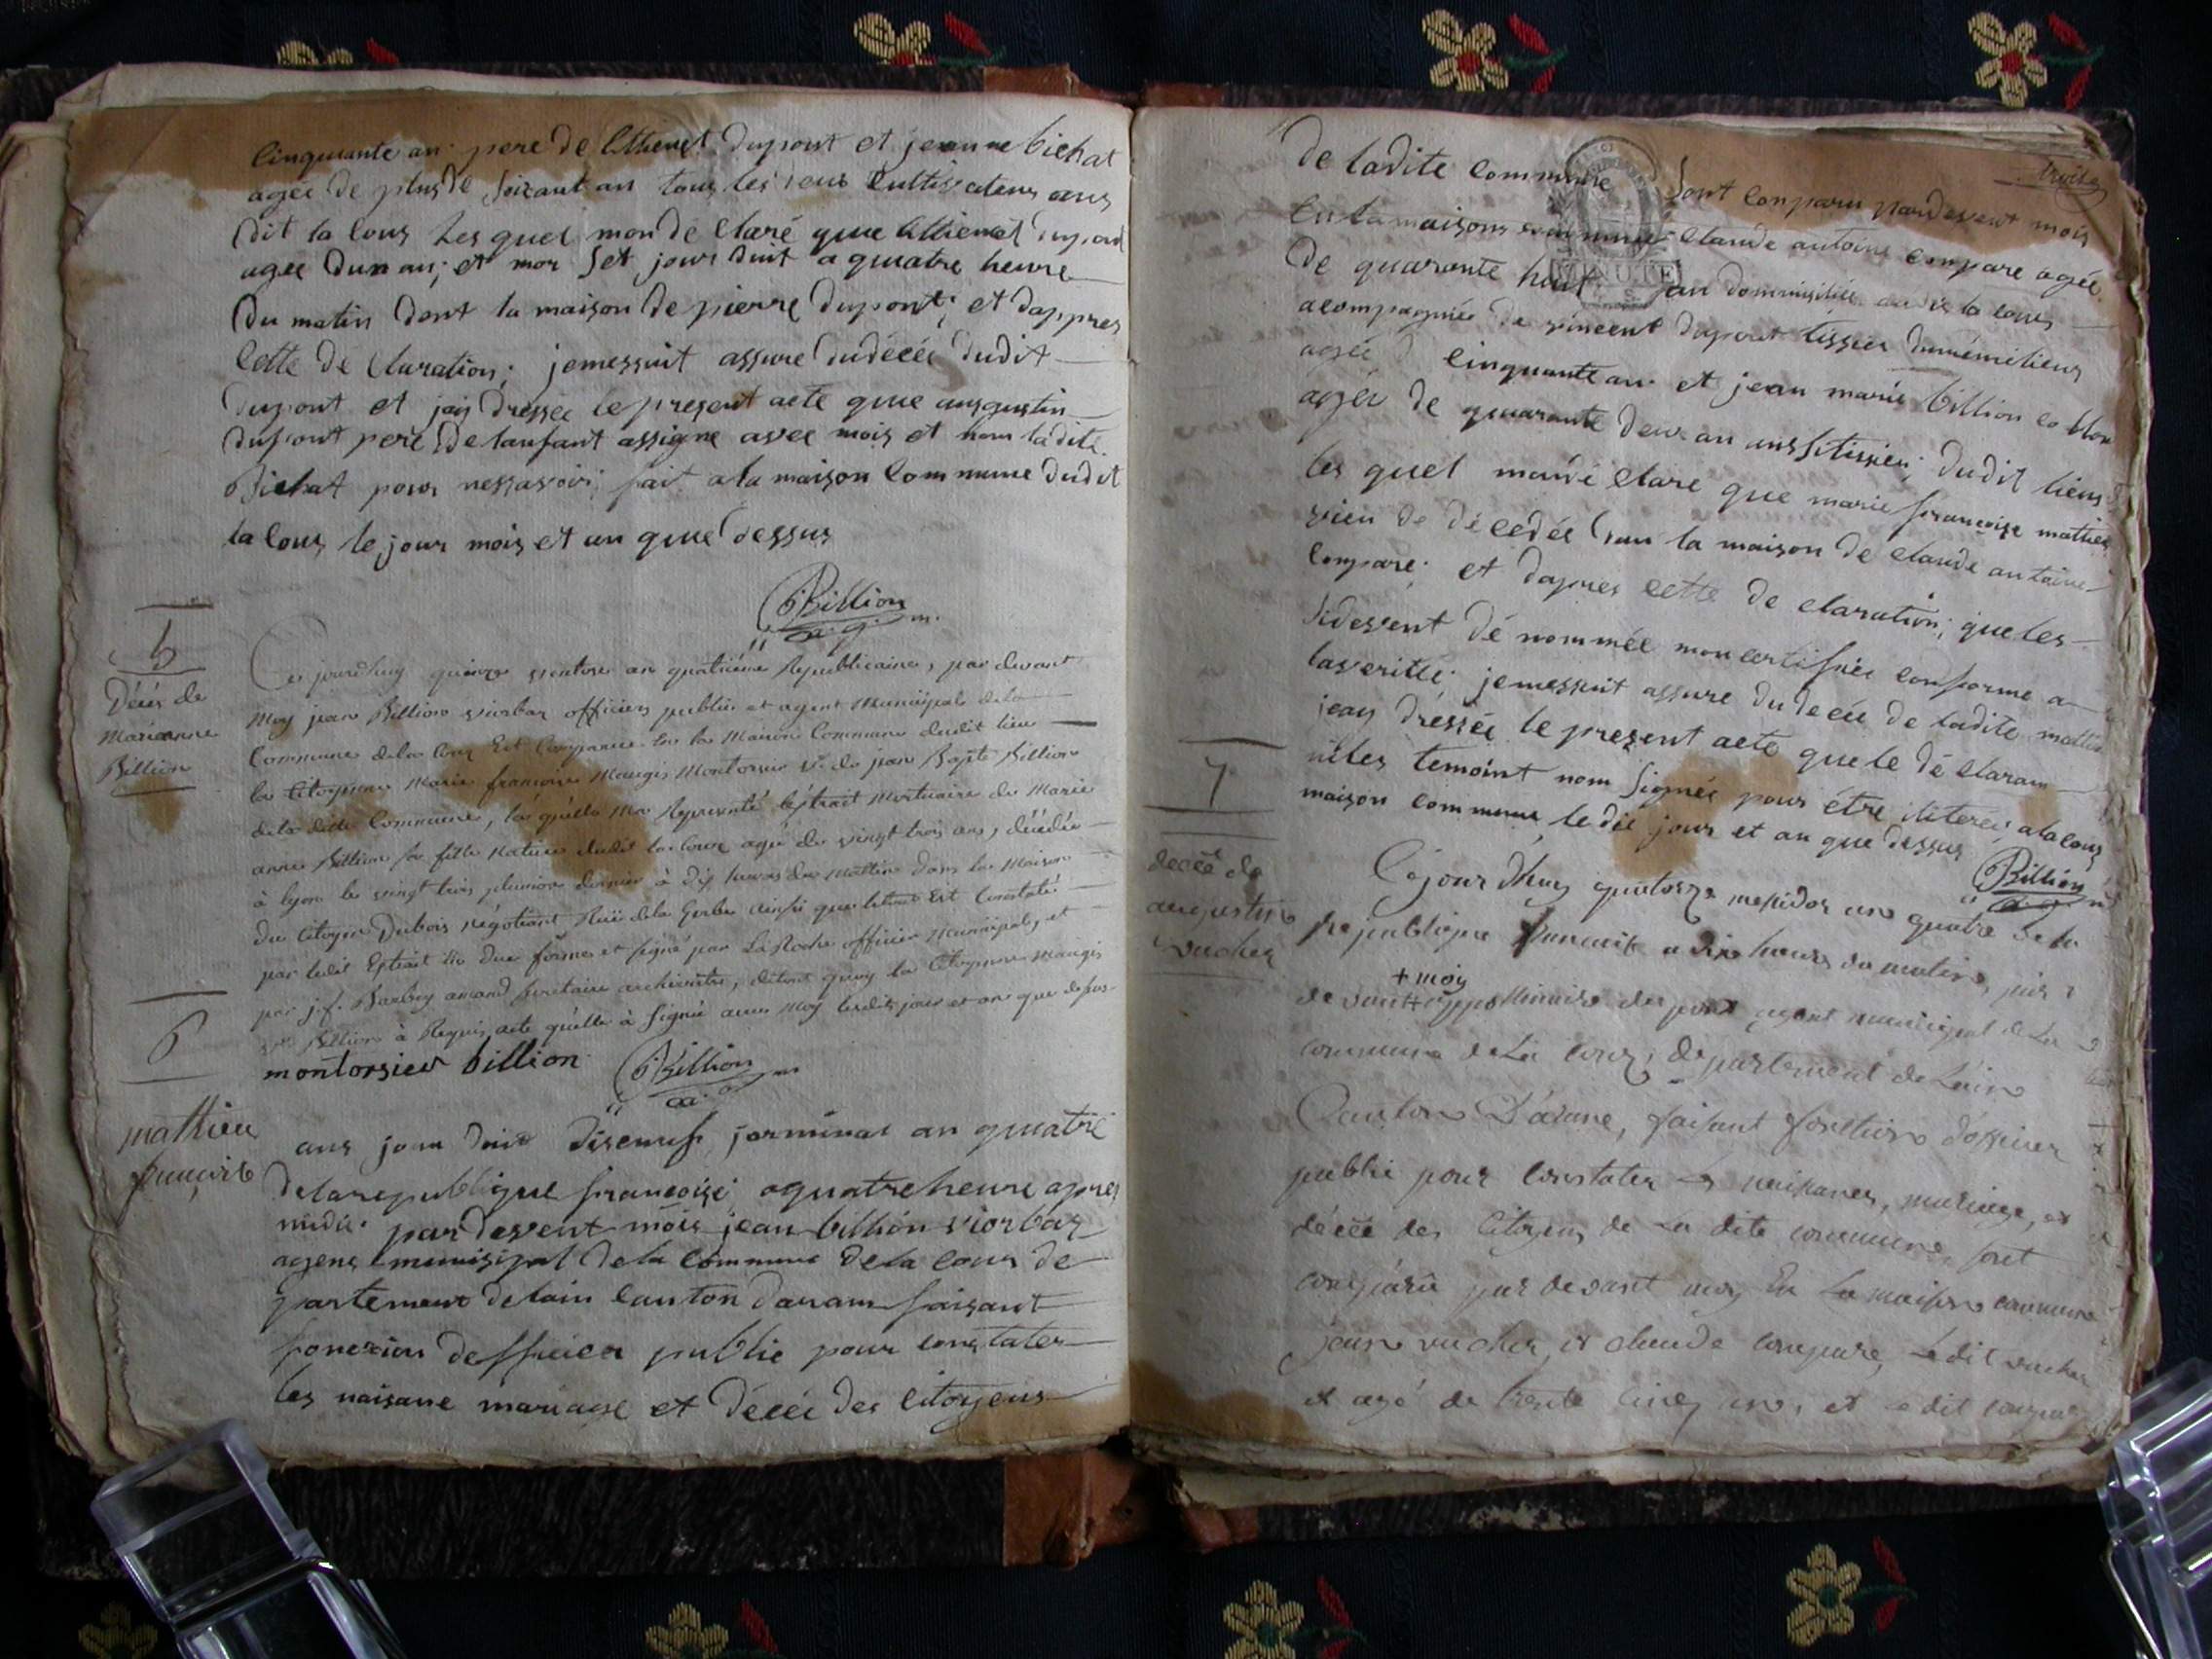 cinquante an pere de Ettienet dupont et jeanne bichat
agée de plus de soixant an tous les cultivateurs aus
dit la cour les quel mon de claré que Ettienet dupont
agée dun an; et mor set jour duit a quatre heure
du matin dent la maison de pierre dupont; et dappres
cette de claration; jemessuit assure du décée dudit
dupont et jay dressée le present acte que augustin
dupont pere de lanfant assigne avec mois et nom ladite
Bichat pour nessavoir; fait a la maison commune dudit
la cour le jour mois et an que dessus
Billion
a. g. m.
5
Décés de
Marianne
Billion
Ce jourdhuy quinze ventose an quatriéme Republicaine, par devant
Moy jean Billion viorbas officier public et agent Municipal de la
Commune de la Cour Est Comparue En la Maison Commune dudit lieu
la Citoyenne Marie francoise Maugis Montorsier Ve de jean Bapte Billion
de la dite Commune, la quelle Ma Représenté lextrait Mortuaire de Marie
anne Billion sa fille Native dudit la Cour agé de vingt trois ans, décédée
à lyon le vingt trois pluviose dernier à dix heures du Mattin dans la Maison
du Citoyen Dubois négotiant Ruë de la Gerbe ainsi que letout Est Constaté
par ledit Extrait En due forme et signé par LaRoche officier Municipal, et
par j.f. Barbey amand secretaire archiviste, dutout quoy la Citoyenne Maugis
Ve Billion à Requis acte qu'elle à signé avec Moy lesdits jour et an que dessus
montorsier billion
Billion
a. g. m.
6
mathieu
françoise
aus jour duit diseneuf jerminal an quatre
de la republique françoise a quatre heure apres
midi par devent mois jean billion viorbas
agent munisipal de la commune de la cour de
partement de lain canton daram faisant
fonczion defficier public pour constater
les naisane mariage et décée des citoyens
troize
de ladite commune sont conparu pardevent mois
en la maison commune claude antoine compare agée
MINUTE
de quarante huit an dommisiliée au dit la cour
acompagnée de vincent dupont tissier du mémelieus
agée cinquante an et jean marie billion
agée de quarante deux an aussi tissier; dudit lieus
les quel mon dé clare que marie françoise mathieu
vien de dé cedée dan la maison de claude antoine
compare; et dapres cette de claration; que les
sidevent dé nommée mon certifiée conforme a
laveritée; jemessuit assure du decée de ladite mathieu
jeay dressée le present acte que le dé claram
niles temoint nom signée pour étre a la cour
maison commune le dit jour et an que dessus
Billion
a. g. m.
7
decêe de
augustin
vucher
Cejourdhuy quatorze mesidor an quatre de la
republique francaise a dix heures du matin, par
+ moy
devant + appollinaire dupont agent municipal de La
commune de La cour, departement de L'ain
Canton D'arane, faisant fonction d'officier
public pour Constater Les naissances, mariage, et
décée des Citoyens de La dite commune, sont
comparu par devant moy En La maison commune
jean vucher, et claude compare, Ledit vucher
et agé de trente cinq ans, et Ledit compare